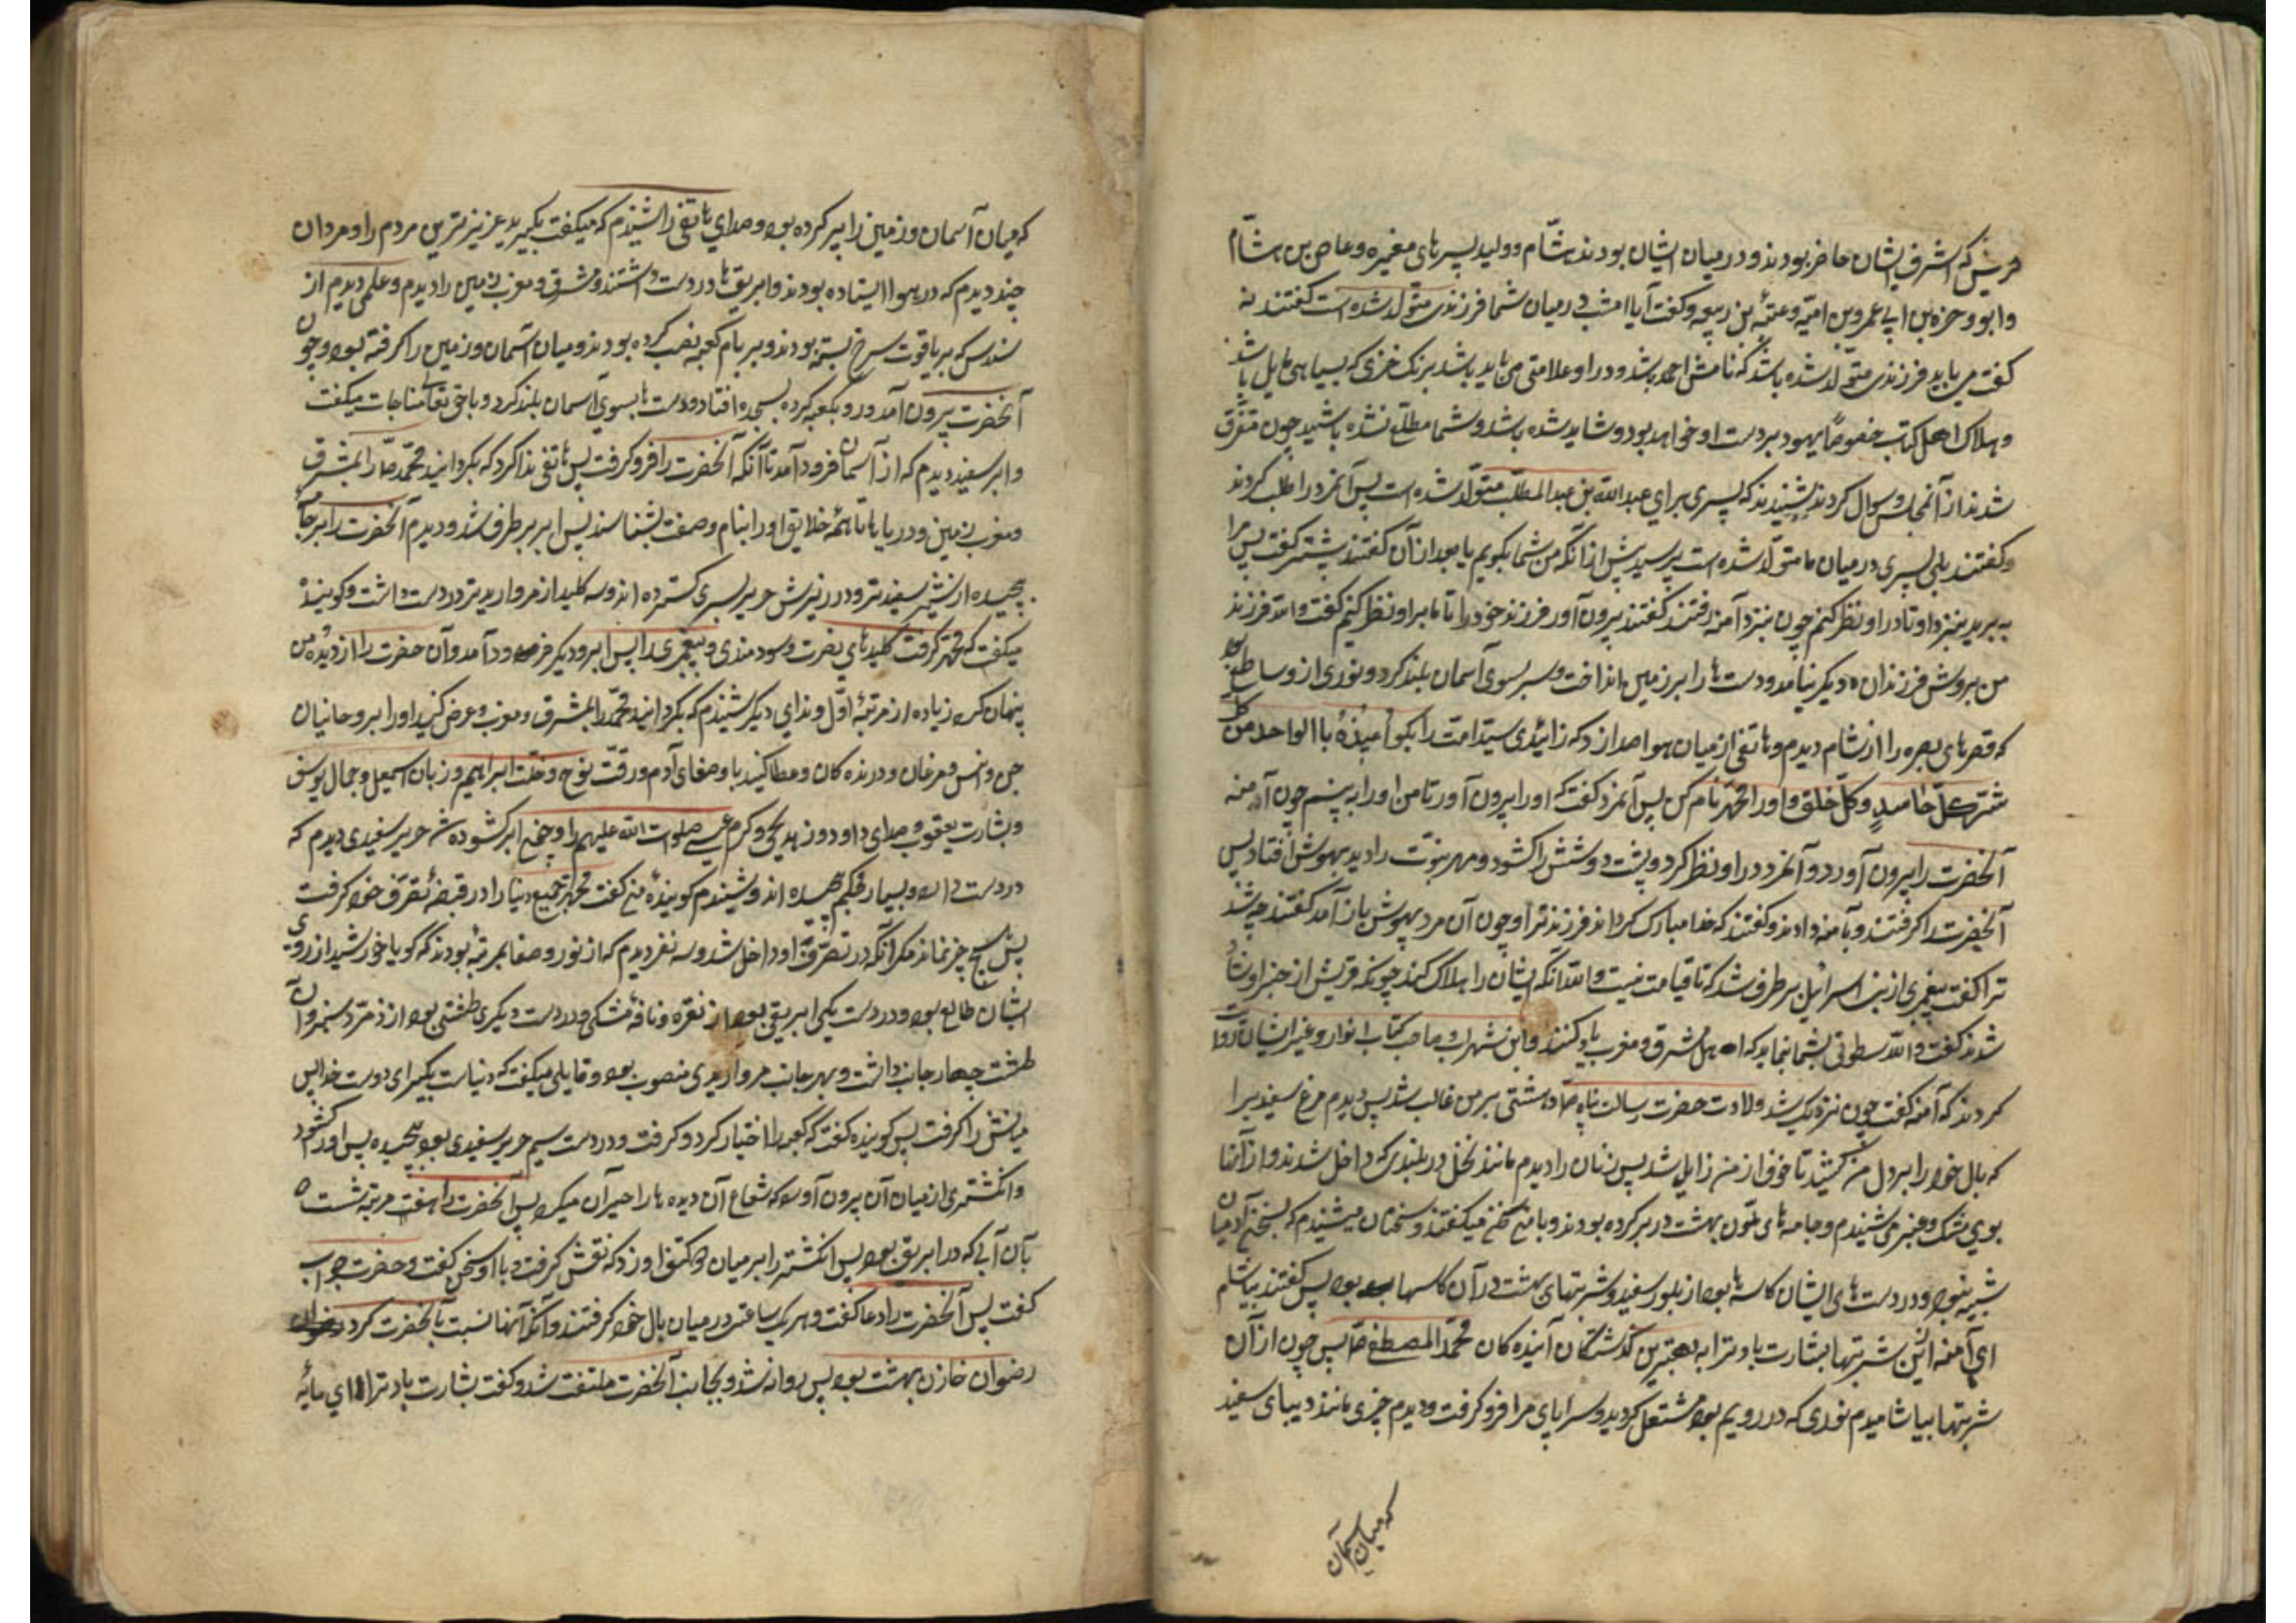 قریش که اشرف ایشان حاضر بودند و در میان ایشان بودند هشام و ولید پسرهای مغیره و عاص بن هشام
و ابو وجزه بن ابی عمرو بن امیّه و عتبهٔ بن ربیعه و گفت آیا امشب در میان شما فرزندی متولد شده است گفتند نه
گفت می باید فرزندی متولّد شده باشد که نامش احمد باشد و در او علامتی می باید باشد برنک خزی که بسیاهی مایل باشد
و هلاک اهل کتاب خصوصاً یهود بر دست او خواهد بود و شاید شده باشد و شما مطلع نشده باشید چون متفرق
شدند از آنمجلس و سوال کردند شنیدند که پسری برای عبد الله بن عبد المطلب متولّد شده است پس آنمرد را طلب کردند
و گفتند بلی پسری در میان ما متولد شده است پرسید پیش از آنکه من بشما بگویم یا بعد از آن گفتند پیشتر گفت پس مرا
به برید بنزد او تا در او نظر کنم چون بنزد آمنه رفتند گفتند بیرون آور فرزند خود را تا ما بر او نظر کنیم گفت و الله فرزند
من بروش فرزندان دیگر نیامد و دست ها را بر زمین انداخت و سر بسوی آسمان بلند کرد و نوری از و ساطع شد
که قصرهای بصره را از شام دیدم و هاتفی از میان هوا صدا زد که زائیدی سید امت را بگو اعیذهُ بالواحد من
شرّ کلّ حاسدٍ و کلّ خلق و او را محمّد نام کن پس آنمرد گفت که او را بیرون آور تا من او را به بینم چون آمنه
آنحضرت را بیرون آورد و آنمرد در او نظر کرد و پشت دوشش را گشود و مهر نبوّت را دید بیهوش افتاد پس
آنحضرت را گرفتند و بآمنه دادند و گفتند که خدا مبارک کرداند فرزند ترا و چون آن مرد بیهوش باز آمد گفتند چه شد
ترا گفت پیغمبری از بنی اسرائیل برطرف شد که تا قیامت نیست و الله آنکه ایشان را هلاک کند چونکه قریش از خبر او شاد
شدند گفت و الله سطوتی بشما بنماید که اهل مشرق و مغرب یاد کنند و ابن شهر اشوب و صاحب کتاب انوار و غیر ایشان روایت
کردند که آمنه گفت چون نزدیک شد ولادت حضرت رسالت پناه ص دهشتی بر من غالب شد پس دیدم مرغ سفیدیرا
که بال خود را بر دل من کشید تا خوف از من زایل شد پس زنان را دیدم مانند نخل در بلندی که داخل شدند و از آنها
بوی مشک و عنبر می شنیدم و جامه های ملوّن بهشت در بر کرده بودند و با من سخن میگفتند و سخنان میشنیدم که بسخن آدمیان
شبیه نبود و در دست های ایشان کاسه ها بود از بلور سفید و شربتهای بهشت در آن کاسها بود پس گفتند بیاشام
ای آمنه ازین شربتها بشارت باد ترا به بهترین گذشتگان آینده کان محمّد المصطفی ص پس چون از آن
شربتها بیاشامیدم نوری که در رویم بود مشتعل کردید و سراپای مرا فرو گرفت و دیدم چیزی مانند دیبای سفید
که میان آسمان
که میان آسمان و زمین را پر کرده بود و صدای هاتفی را شنیدم که میگفت بگیرید عزیزترین مردم را و مردان
چند دیدم که در هوا ایستاده بودند و ابریق ها در دست داشتند و مشرق و مغرب زمین را دیدم و علمی دیدم از
سندس که بر یاقوت سرخ بسته بودند و بر بام کعبه نصب کرده بودند و میان آسمان و زمین را گرفته بود و چون
آنحضرت بیرون آمد و رو بکعبه کرده بسجده افتاد و دست ها بسوی آسمان بلند کرد و با حق تعالی مناجات میگفت
و ابر سفید دیدم که از آسمان فرود آمد تا آنکه آنحضرت را فرو گرفت پس هاتفی ندا کرد که بگردانید محمّد ص را بمشرق
و مغرب زمین و دریاها تا همهٔ خلایق او را بنام و صفت بشناسند پس ابر بر طرف شد و دیدم آنحضرت را بر جامه
پیچیده از شیر سفید تر و در زیرش حریر سبزی گسترده اند و سه کلید از مروارید تر در دست داشت و گوینده
میگفت که محمّد گرفت کلیدهای نصرت و سودمندی و پیغمبری را پس ابر دیگر فرود آمد و آن حضرت را از دیده من
پنهان کرد زیاده از مرتبهٔ اوّل و ندای دیگر شنیدم که بگردانید محمّد را بمشرق و مغرب و عرض کنید او را بر روحانیان
جن و انس و مرغان و درنده کان و عطا کنید باو صفای آدم و رقّت نوح و خلّت ابراهیم و زبان اسمعیل و جمال یوسف
و بشارت یعقوب و صدای داود و زهد یحیی و کرم عیسی صلوات الله علیهم را و چون ابر گشوده شد حریر سفیدی دیدم که
در دست دارد و بسیار محکم پیچیده اند و شنیدم گویندهٔ میگفت محمّد جمیع دنیا را در قبضهٔ تصرّف خود گرفت
پس هیچ چیز نماند مگر آنکه در تصرّف او داخل شد و سه نفر دیدم که از نور و صفا بمرتبهٔ بودند که گویا خورشید از روی
ایشان طالع بود و در دست یکی ابریقی بود از نقره و نافهٔ مشکی و در دست دیگری طشتی بود از زمرّد سبز و آن
طشت چهار جانب داشت و بهر جانب مرواریدی منصوب بود و قایلی میگفت که دنیاست بگیر ای دوست خدا پس
میانش را گرفت پس گوینده گفت که کعبه را اختیار کرد و گرفت و در دست سیم حریر سفیدی بود پیچیده پس او را گشود
و انگشتری از میان آن بیرون آورد که شعاع آن دیده ها را حیران میکرد پس آنحضرت را هفت مرتبه شست
بآن آبی که در ابریق بود پس انگشتر را بر میان دو کتف او زد که نقش گرفت و با او سخن گفت و حضرت جواب
گفت پس آنحضرت را دعا گفت و هر یک ساعتی در میان بال خود گرفتند و آنکه آنها نسبت بآنحضرت کرد
رضوان خازن بهشت بود پس روانه شد و بجانب آنحضرت ملتفت شد و گفت بشارت باد ترا ای مایهٔ